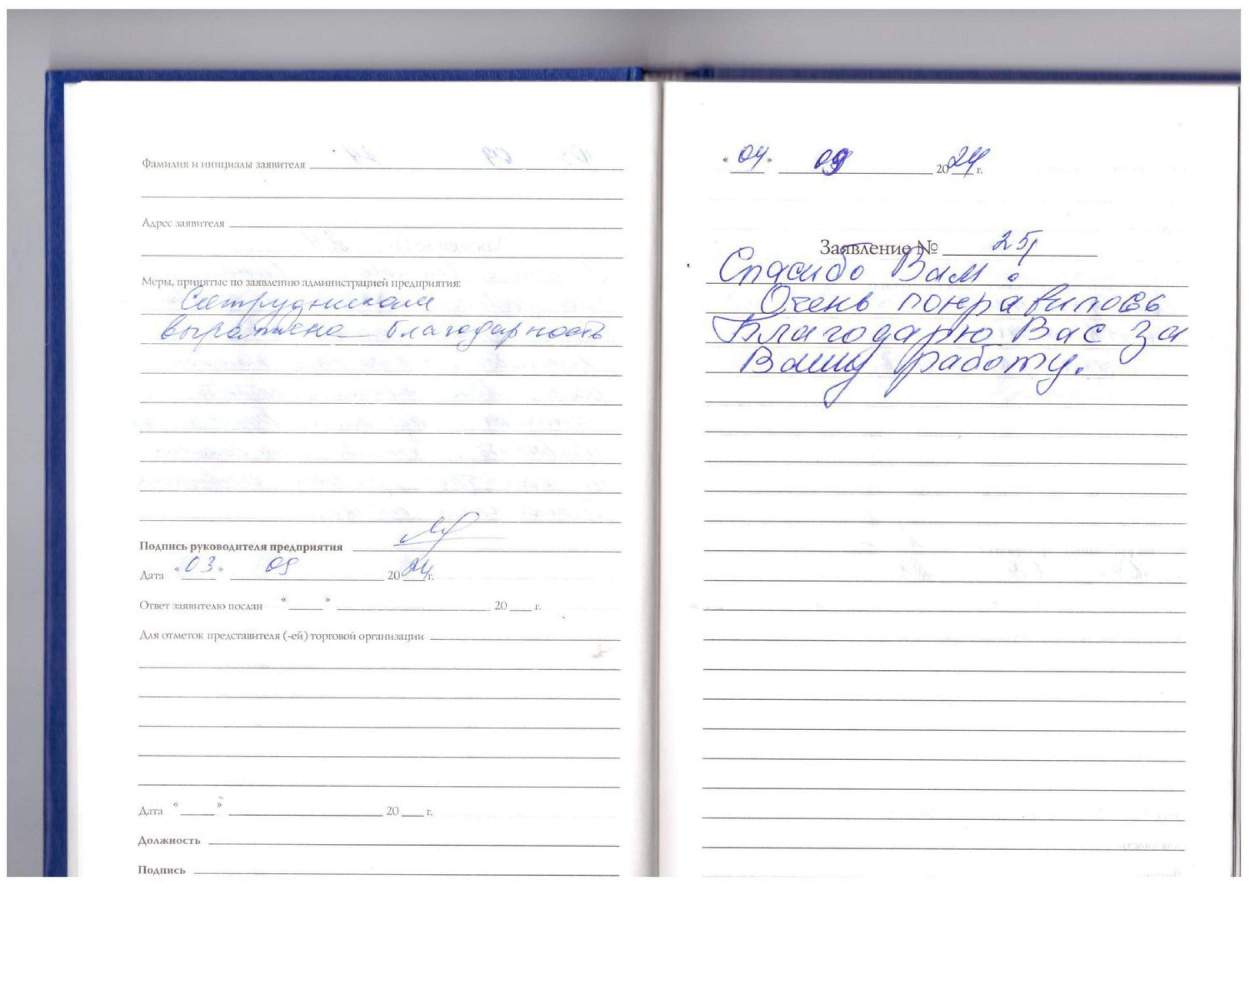 Фамилия и инициалы заявителя
Адрес заявителя
Меры, принятые по заявлению администрацией предприятия:
Сотрудникам
выражена благодарность
Подпись руководителя предприятия
Дата «03» 09 2024 г.
Ответ заявителю послан « » 20 г.
Для отметок представителя (-ей) торговой организации
Дата « » 20 г.
Должность
Подпись
«04» 09 2024 г.
Заявление № 25
Спасибо Вам!
Очень понравилось
Благодарю Вас за
Вашу работу.